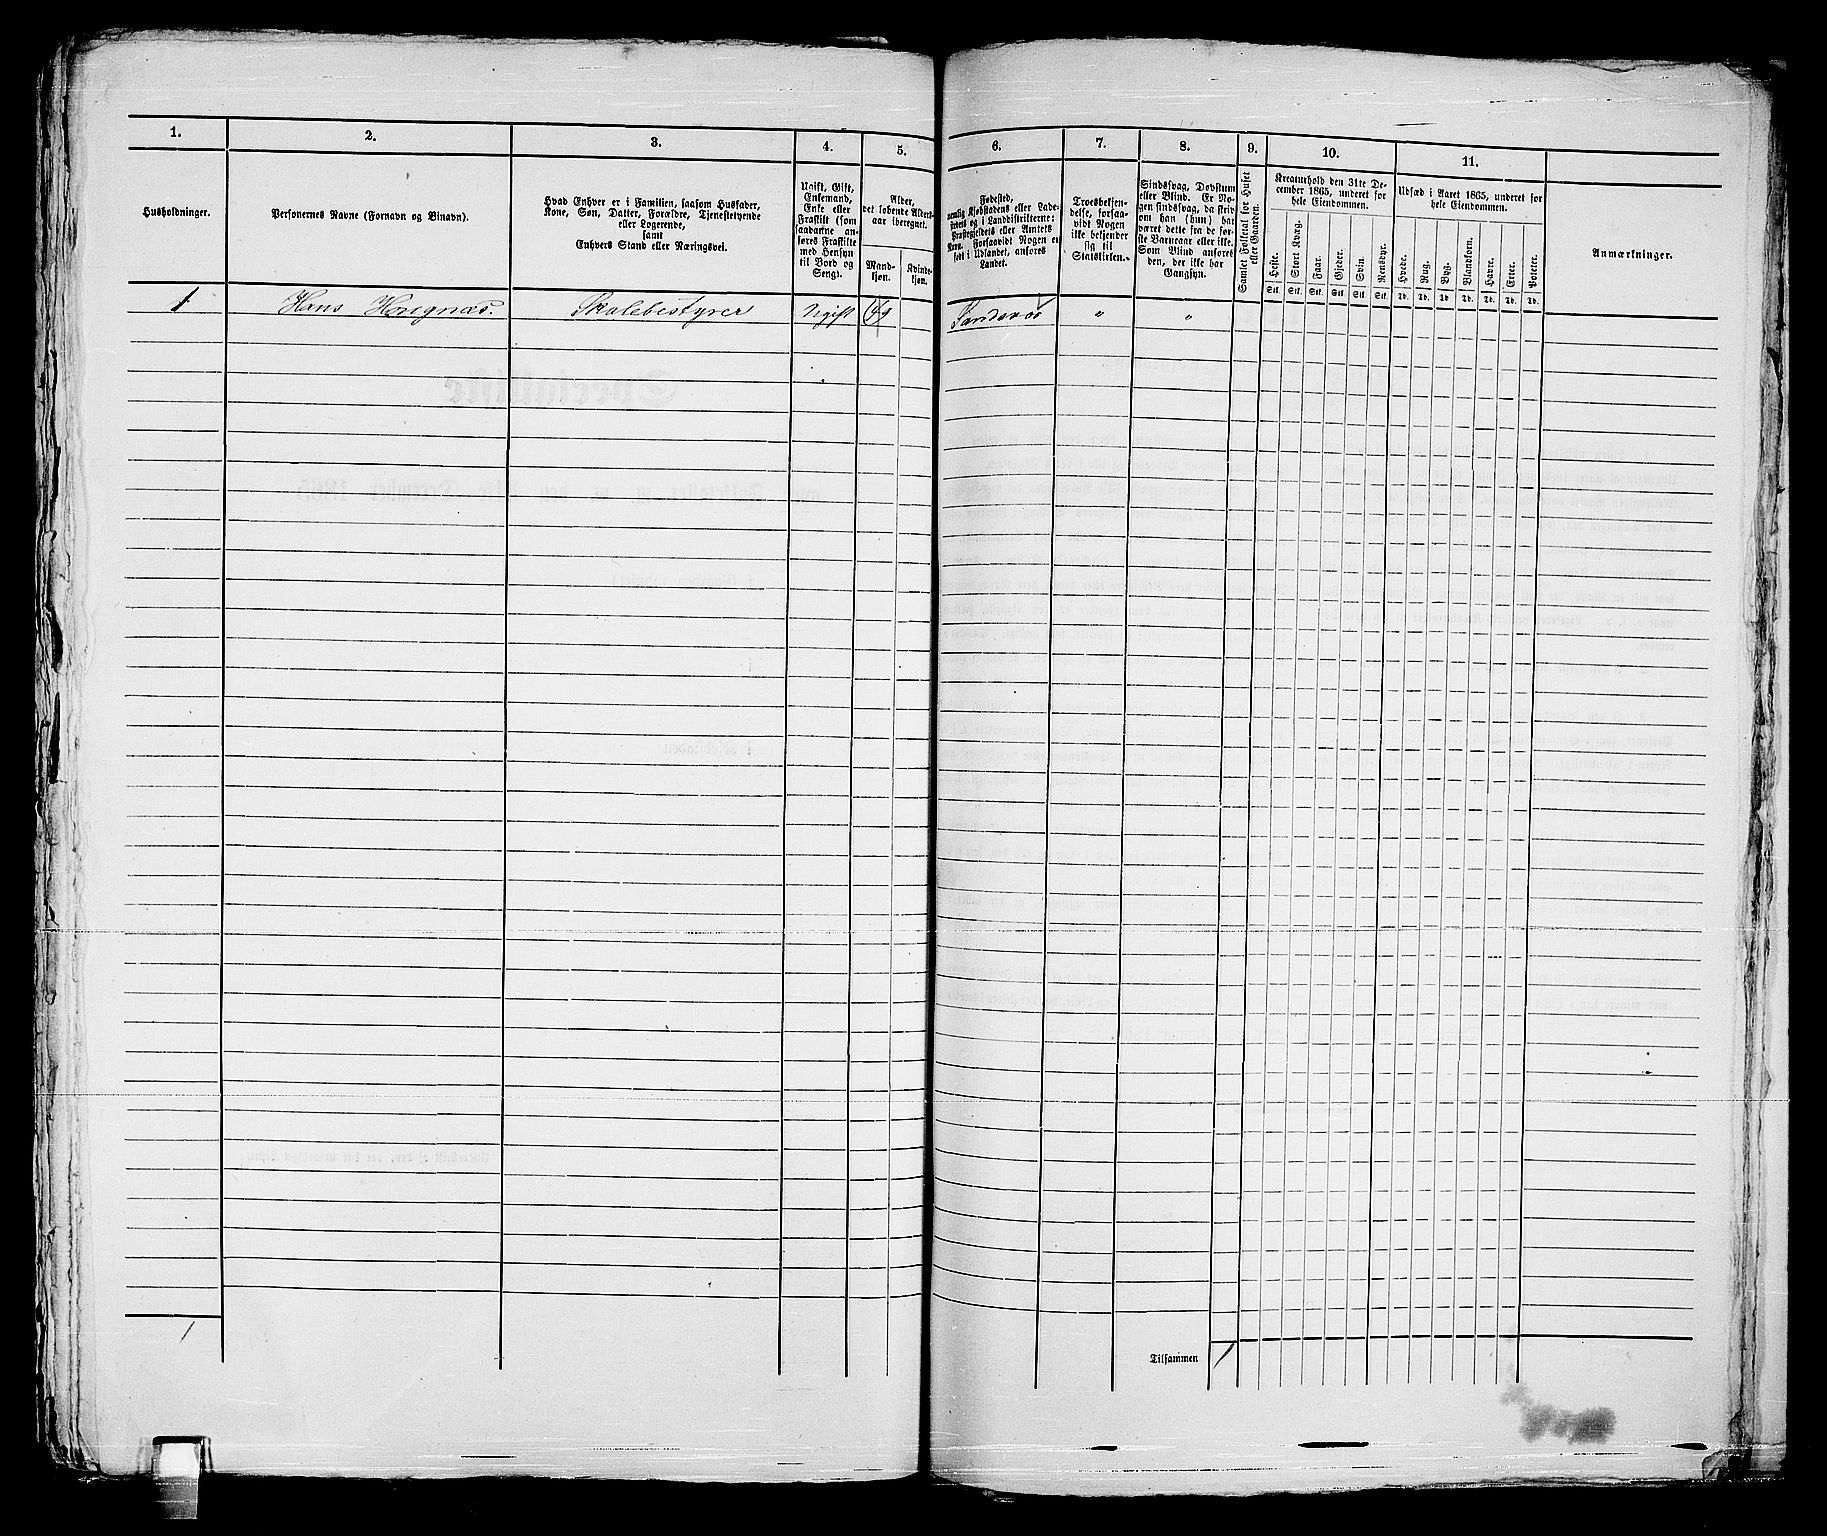 1. 2. 3. 4. 5. 6. 7. 8. 9. 10. 11.
Husholdninger.
Personernes Navne (Fornavn og Binavn).
Hvad Enhver er i Familien, saasom Husfader,
Kone, Søn, Datter, Forældre, Tjenestetyende
eller Logerende,
samt
Enhvers Stand eller Næringsvei.
Ugift, Gift,
Enkemand,
Enke eller
Fraskilt (som
saadanne an-
føres Fraskilte
med Hensyn
til Bord og
Seng).
Alder,
det løbende Alders-
aar iberegnet.
Mand-
kjøn.
Kvinde-
kjøn.
Fødested,
nemlig Kjøbstadens eller Lade-
stedets og i Landdistrikterne:
Præstegjeldets eller Amtets
Navn. Forsaavidt Nogen er
født i Udlandet, anføres
Landet.
Troesbekjen-
delse, forsaa-
vidt Nogen
ikke bekjender
sig til
Statskirken.
Sindssvag, Døvstum
eller Blind. Er No-
gen sindssvag, da skriv
om han (hun) har
været dette fra de før-
ste Barneaar eller ikke.
Som Blind anføres
den, der ikke har
Gangsyn.
Samlet Folketal for Huset
eller Gaarden.
Kreaturhold den 31te De-
cember 1865, underet for
hele Eiendommen.
Heste. Stort Kvæg. Faar. Gjeder. Svin. Rensdyr.
Stk. Stk. Stk. Stk. Stk. Stk.
Udsæd i Aaret 1865, underet for
hele Eiendommen.
Hvede. Rug. Byg. Blandkorn. Havre. Erter. Poteter.
Td. Td. Td. Td. Td. Td. Td.
Anmærkninger.
1 Hans Skolebestyrer Ugift 49 " "
1
Tilsammen 1